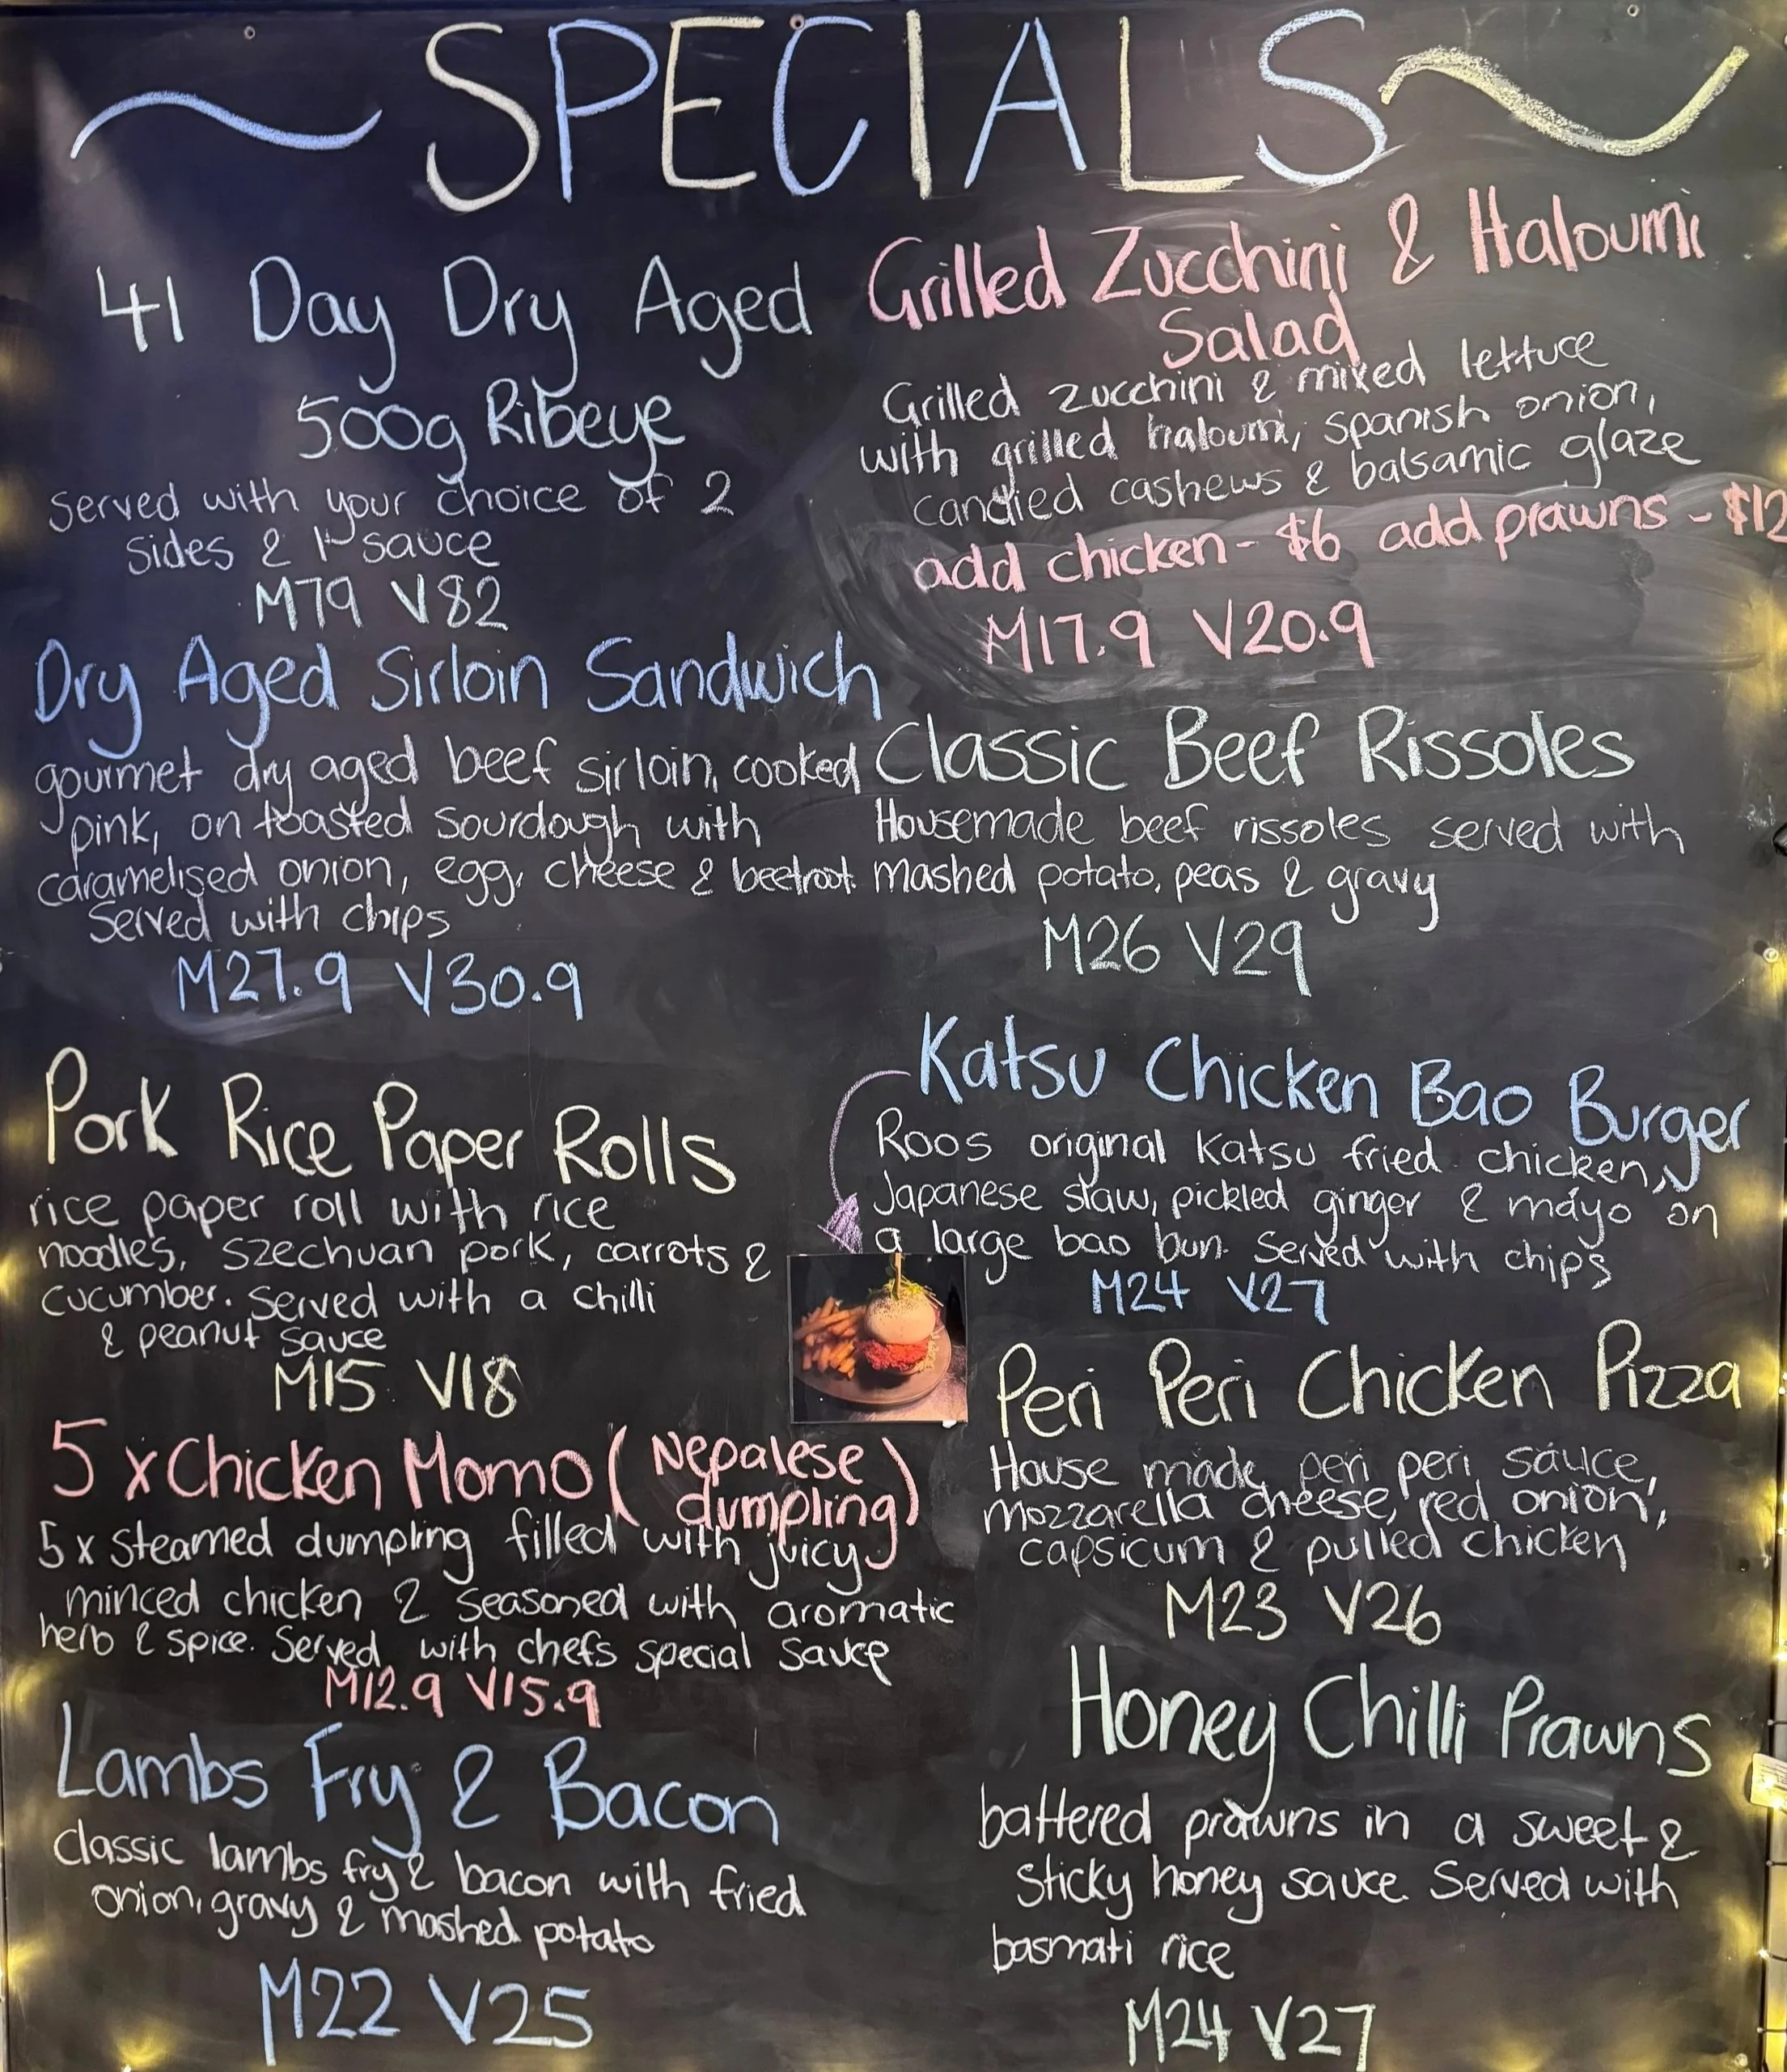 SPECIALS
41 Day Dry Aged
500g Ribeye
Served with your choice of 2
sides & 1 sauce
M79 V82
Dry Aged Sirloin Sandwich
gourmet dry aged beef sirloin, cooked
pink, on toasted sourdough with
caramelised onion, egg, cheese & beetroot.
Served with chips
M27.9 V30.9
Pork Rice Paper Rolls
rice paper roll with rice
noodles, szechuan pork, carrots &
cucumber. Served with a chilli
& peanut sauce
M15 V18
5 x Chicken Momo (Nepalese
dumpling)
5 x steamed dumpling filled with juicy
minced chicken & seasoned with aromatic
herb & spice. Served with chefs special sauce
M12.9 V15.9
Lambs Fry & Bacon
Classic lambs fry & bacon with fried
onion, gravy & mashed potato
M22 V25
Grilled Zucchini & Haloumi
Salad
Grilled zucchini & mixed lettuce
with grilled haloumi, spanish onion,
candied cashews & balsamic glaze
add chicken - $6 add prawns - $12
M17.9 V20.9
Classic Beef Rissoles
Housemade beef rissoles served with
mashed potato, peas & gravy
M26 V29
Katsu Chicken Bao Burger
Roos original Katsu fried chicken,
Japanese slaw, pickled ginger & mayo on
a large bao bun. Served with chips
M24 V27
Peri Peri Chicken Pizza
House made peri peri sauce,
mozzarella cheese, red onion,
capsicum & pulled chicken
M23 V26
Honey Chilli Prawns
battered prawns in a sweet &
sticky honey sauce. Served with
basmati rice
M24 V27